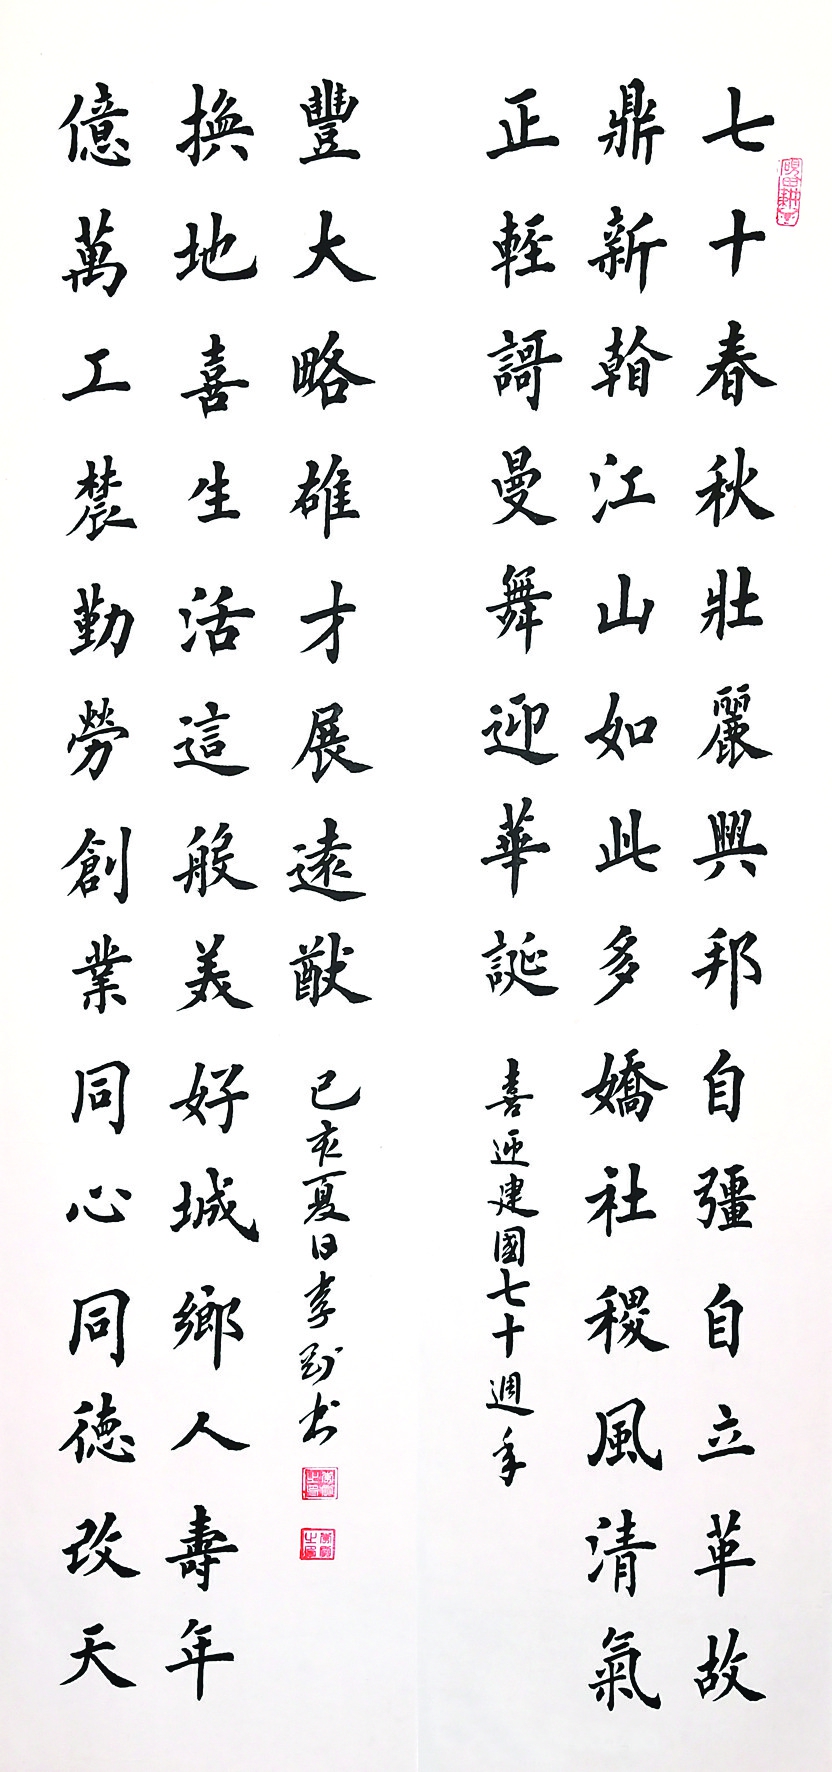 七十春秋壯麗興邦自彊自立革故
鼎新䀍江山如此多嬌社稷風清氣
正輕謌曼舞迎華誕
喜迎建國七十週年
億萬工辳勤勞創業同心同德改天
換地喜生活這般美好城鄉人壽年
豐大略雄才展遠猷
己亥夏日李书